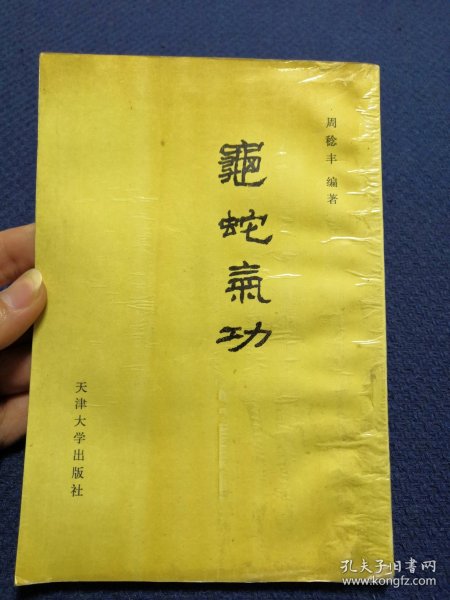 周稔丰 编著
龜蛇氣功
天津大学出版社
孔夫子旧书网
www.kongfz.com